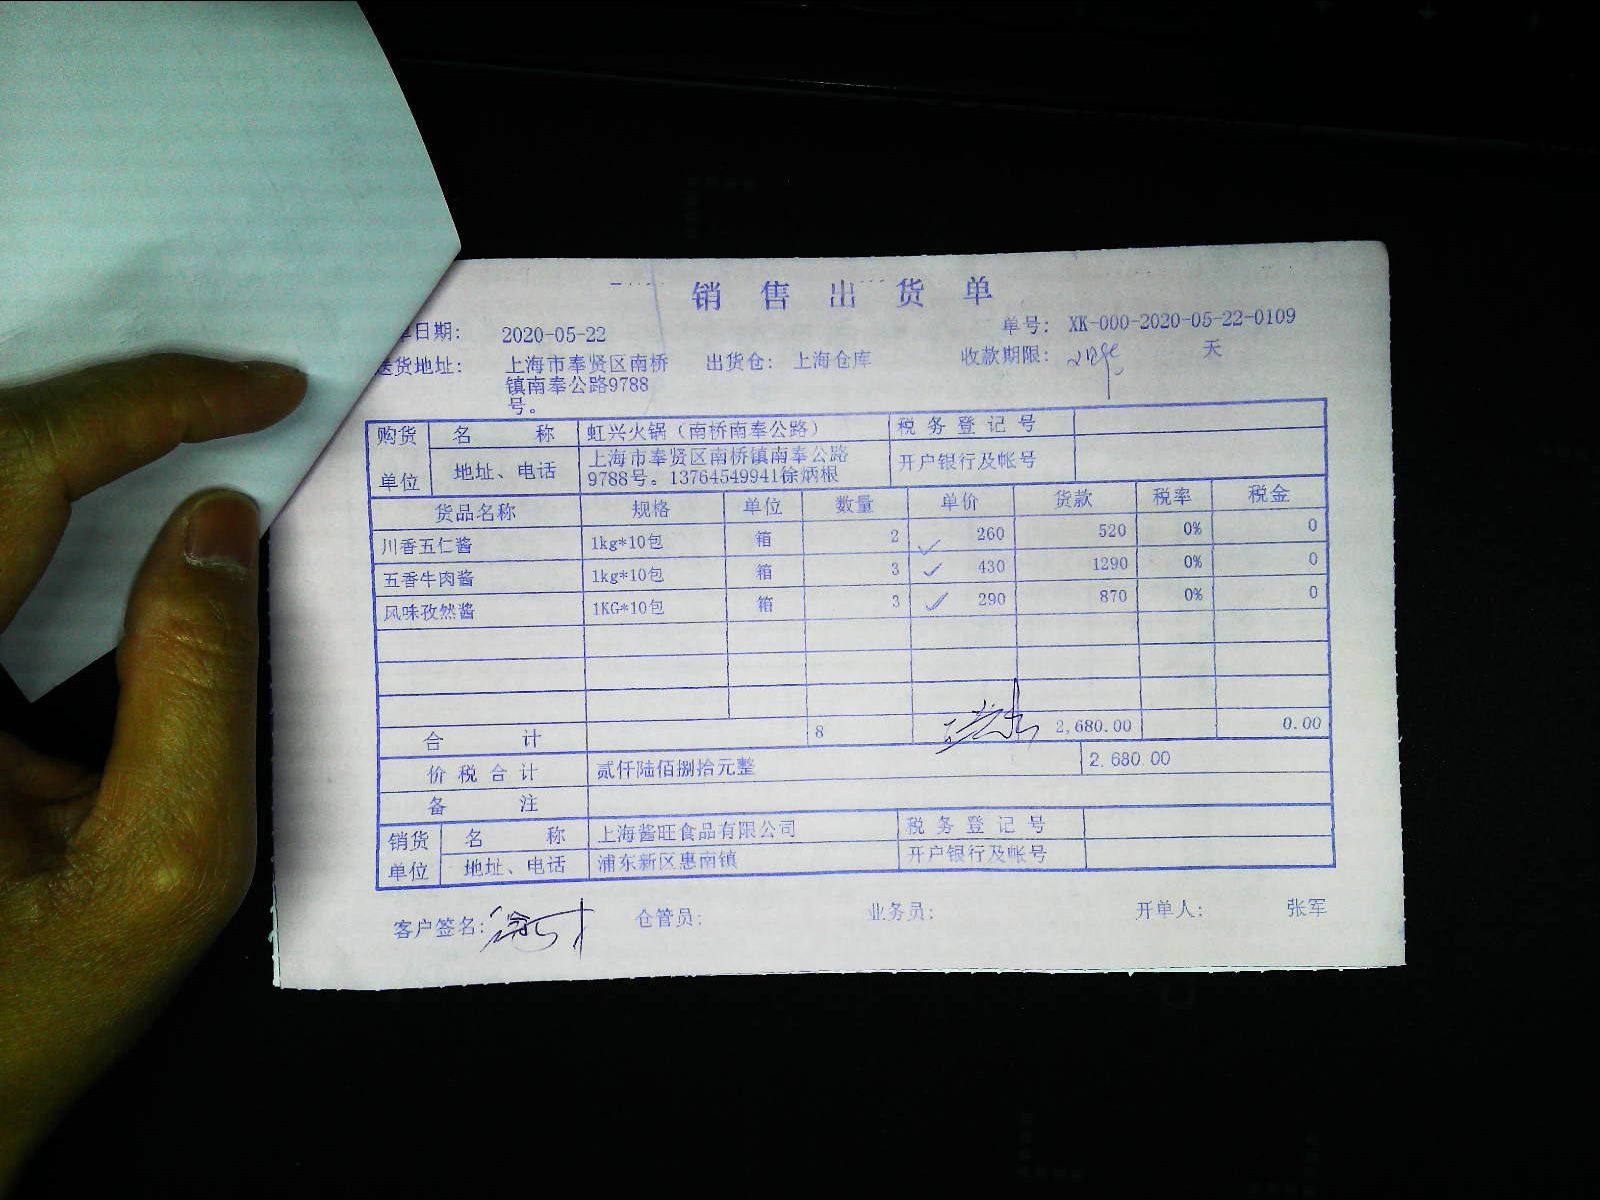 销售出货单
单日期： 2020-05-22 单号： XK-000-2020-05-22-0109
送货地址： 上海市奉贤区南桥 出货仓： 上海仓库 收款期限： 天
镇南奉公路9788
号。
购货 名 称 虹兴火锅（南桥南奉公路） 税务登记号
单位 地址、电话 上海市奉贤区南桥镇南奉公路 开户银行及帐号
9788号。13764549941徐炳根
货品名称 规格 单位 数量 单价 货款 税率 税金
川香五仁酱 1kg*10包 箱 2 260 520 0% 0
五香牛肉酱 1kg*10包 箱 3 430 1290 0% 0
风味孜然酱 1KG*10包 箱 3 290 870 0% 0
合 计 8 2,680.00 0.00
价税合计 贰仟陆佰捌拾元整 2,680.00
备 注
销货 名 称 上海酱旺食品有限公司 税务登记号
单位 地址、电话 浦东新区惠南镇 开户银行及帐号
客户签名： 仓管员： 业务员： 开单人： 张军